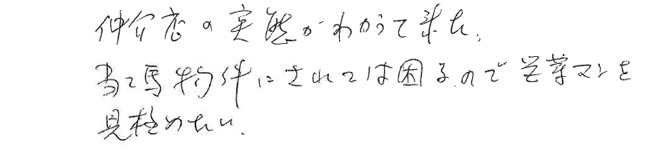 仲介店の実態がわかって来た。
当て馬物件にされては困るので営業マンを
見極めたい.